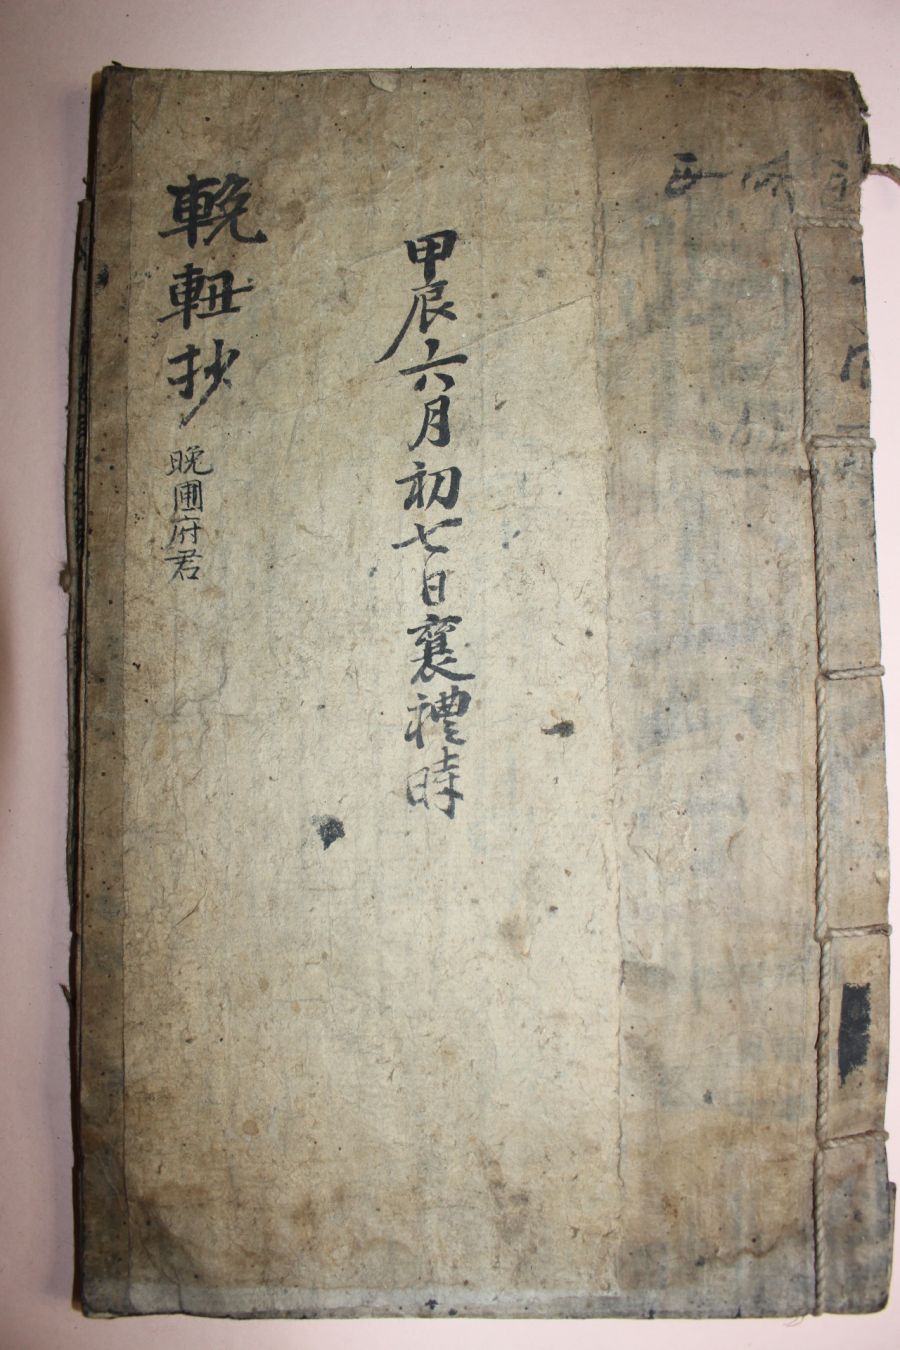 甲辰六月初七日襄禮時
輓䡎抄 晩圃府君